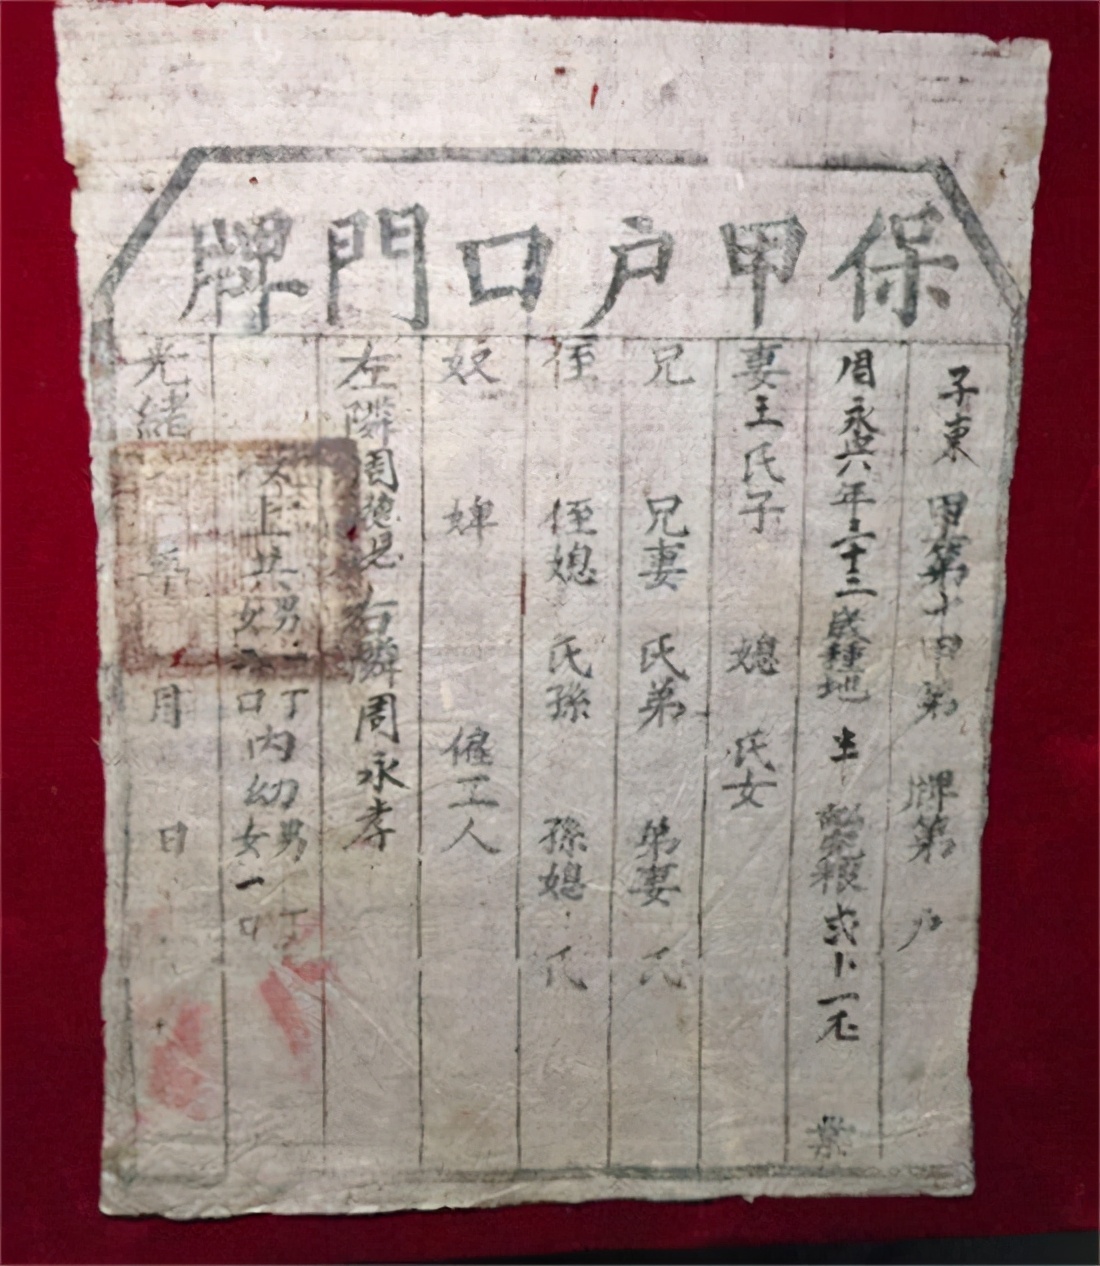 保甲户口門牌
子東 甲第十甲第 牌第 户
周永 八年三十三歲種地 生 完粮 一 業
妻王氏子 媳 氏女
兄 兄妻 氏弟 弟妻 氏
侄 侄媳 氏孫 孫媳 氏
奴 婢 僱工人
左隣周 右隣周永孝
以上共男 丁女 口內幼男 丁女一口
光緒 年 月 日